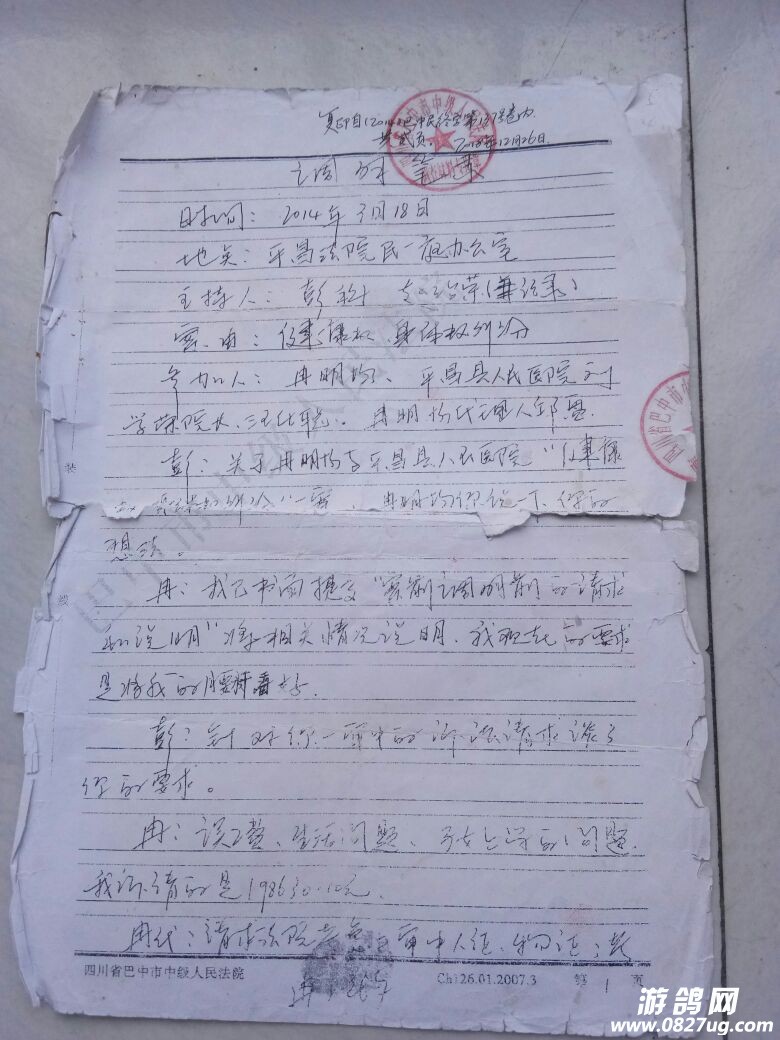 复印自(2014)巴中民终字第137号卷内
共贰页. 2018年12月26日.
调解笔录
时间: 2014年3月18日
地点: 平昌法院民一庭办公室
主持人: 彭科 (兼记录)
案由: 健康权、身体权纠纷
参加人: 冉明 、平昌县人民医院刘
学荣院长、 。冉明 代理人邱
彭: 关于冉明 与平昌县人民医院“健康
纠纷”一案, 冉明 你说一下、你的
想法。
冉: 我已书面提交“案前调解前的请求
和说明”将相关情况说明、我现在的要求
是将我的腰 看好.
彭: 针对你一审中的诉讼请求谈了
你的要求。
冉: 误工费、生活问题、子女上学的问题.
我诉请的是198630.10元.
冉代: 请求法院 审中人证、物证、
四川省巴中市中级人民法院 Ch126.01.2007.3 第 1 页
装
线
游鸽网
www.0827ug.com